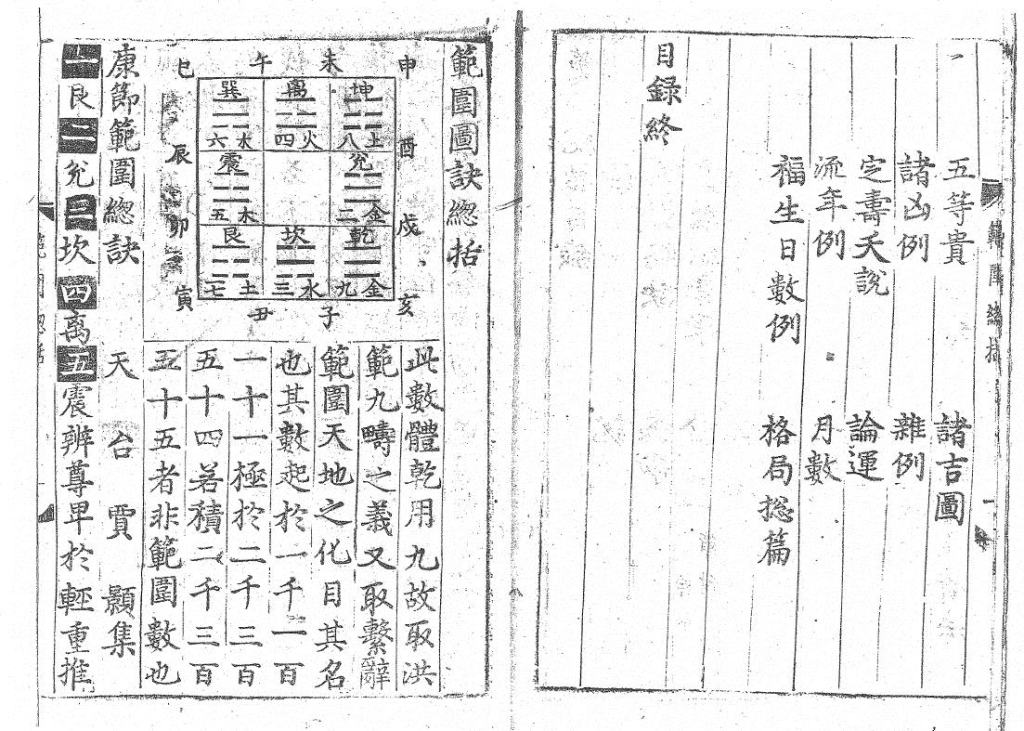 五等貴 諸吉圖
諸凶例 雜例
定壽夭說 論運
流年例 月數
福生日數例 格局捴篇
目録終
範圍圖訣緫括
申 未 午 巳
酉 戌 亥
子 丑
辰 卯 寅
坤 土八
离 火四
巽 木六
兊 金二
震 木五
乾 金九
坎 水三
艮 土七
此數體乾用九故取洪
範九疇之義又取繫辭
範圍天地之化目其名
也其數起於一千一百
一十一極於二千三百
五十四若積二千三百
五十五者非範圍數也
康節範圍緫訣 天台賈顥集
一艮二兊三坎四离五震辨尊卑於輕重推